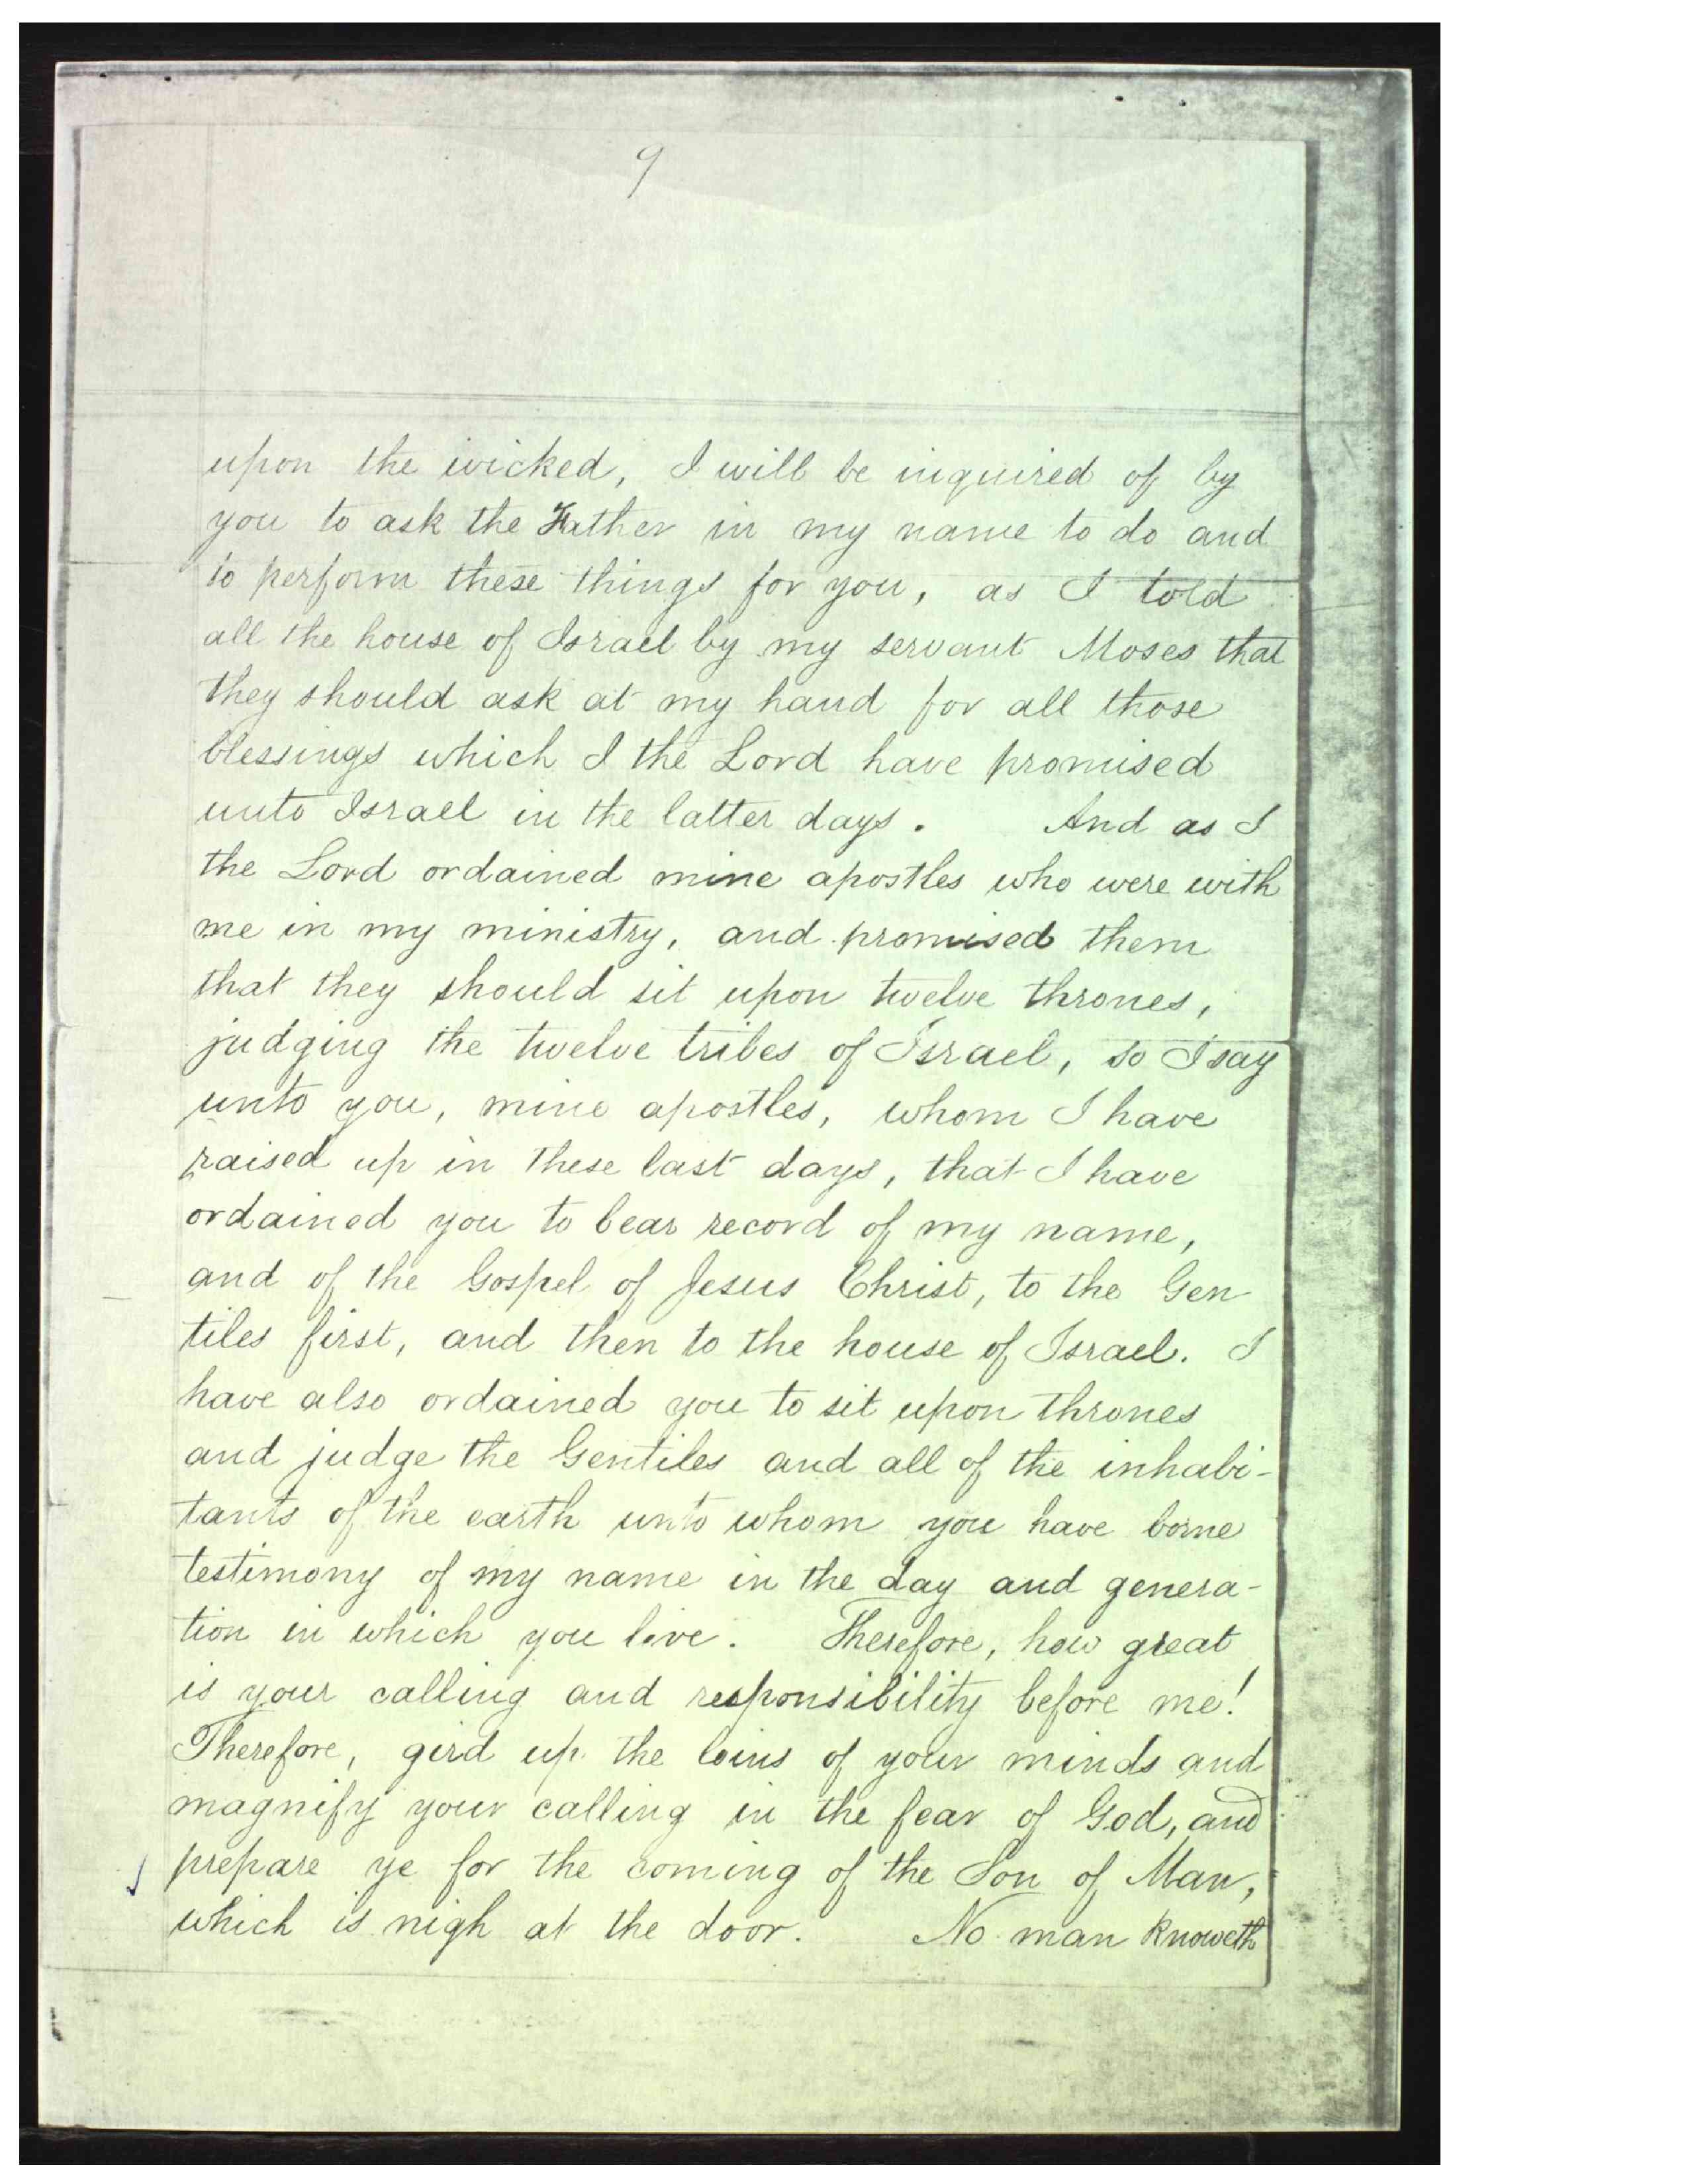 9
upon the wicked, I will be inquired of by
you to ask the Father in my name to do and
to perform these things for you, as I told
all the house of Israel by my servant Moses that
they should ask at my hand for all those
blessings which I the Lord have promised
unto Israel in the latter days. And as I
the Lord ordained mine apostles who were with
me in my ministry, and promised them
that they should sit upon twelve thrones,
judging the twelve tribes of Israel, so I say
unto you, mine apostles, whom I have
raised up in these last days, that I have
ordained you to bear record of my name,
and of the Gospel of Jesus Christ, to the Gen
tiles first, and then to the house of Israel. I
have also ordained you to sit upon thrones
and judge the Gentiles and all of the inhabi-
tants of the earth unto whom you have borne
testimony of my name in the day and genera-
tion in which you live. Therefore, how great
is your calling and responsibility before me!
Therefore, gird up the loins of your minds and
magnify your calling in the fear of God, and
prepare ye for the coming of the Son of Man,
which is nigh at the door. No man knoweth